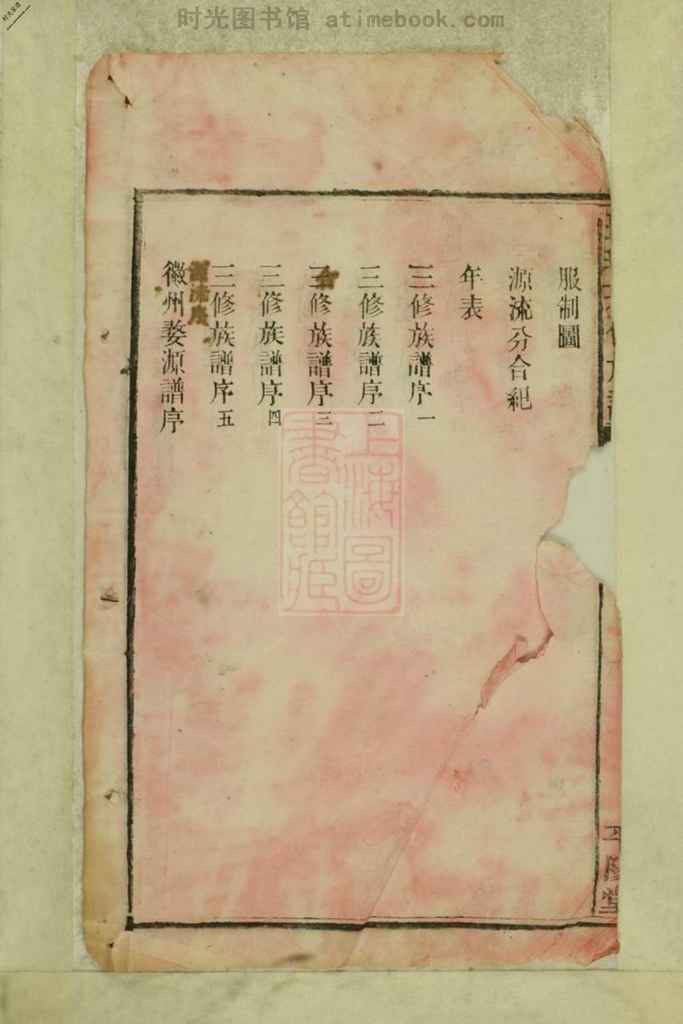 时光图书馆 atimebook.com
服制圖
源流分合紀
年表
三修族譜序一
三修族譜序二
三修族譜序三
三修族譜序四
三修族譜序五
徽州婺源譜序
上海圖書館藏